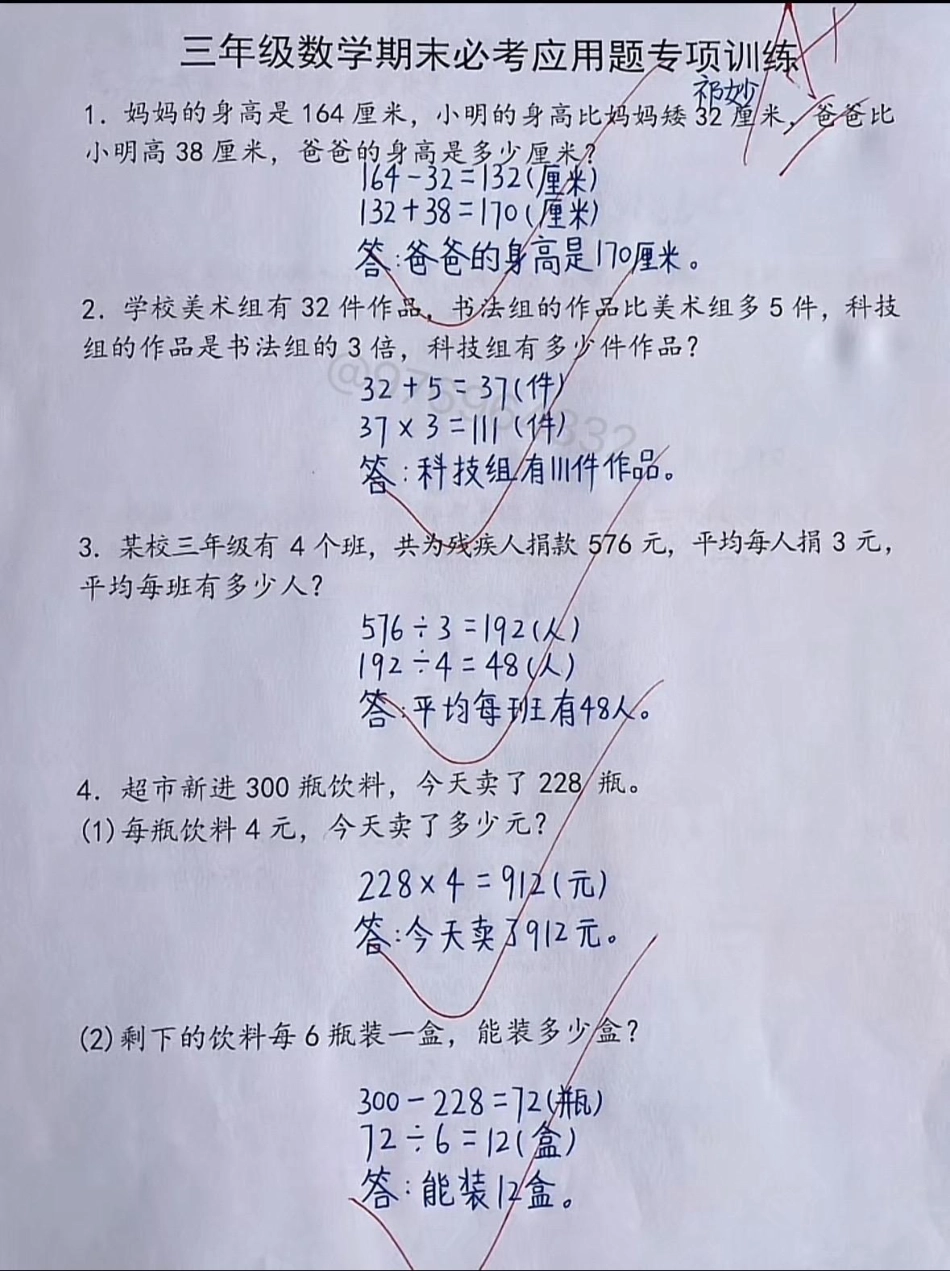 三年级数学期末必考应用题专项训练
A+
祁妙
1. 妈妈的身高是 164 厘米，小明的身高比妈妈矮 32 厘米，爸爸比
小明高 38 厘米，爸爸的身高是多少厘米？
164-32=132(厘米)
132+38=170(厘米)
答:爸爸的身高是170厘米。
2. 学校美术组有 32 件作品，书法组的作品比美术组多 5 件，科技
组的作品是书法组的 3 倍，科技组有多少件作品？
32+5=37(件)
37×3=111(件)
答:科技组有111件作品。
3. 某校三年级有 4 个班，共为残疾人捐款 576 元，平均每人捐 3 元，
平均每班有多少人？
576÷3=192(人)
192÷4=48(人)
答:平均每班有48人。
4. 超市新进 300 瓶饮料，今天卖了 228 瓶。
(1)每瓶饮料 4 元，今天卖了多少元？
228×4=912(元)
答:今天卖了912元。
(2)剩下的饮料每 6 瓶装一盒，能装多少盒？
300-228=72(瓶)
72÷6=12(盒)
答:能装12盒。